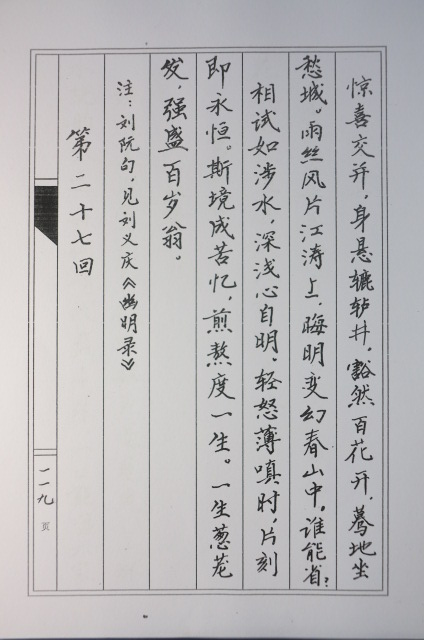 惊喜交并，身悬辘轳井，豁然百花开，蓦地坐
愁城。雨丝风片江涛上，晦明变幻春山中。谁能省？
相试如涉水，深浅心自明，轻怒薄嗔时，片刻
即永恒。斯境成苦忆，煎熬度一生。一生葱茏
发，强盛百岁翁。
注：刘阮句，见刘义庆《幽明录》
第二十七回
一一九
页